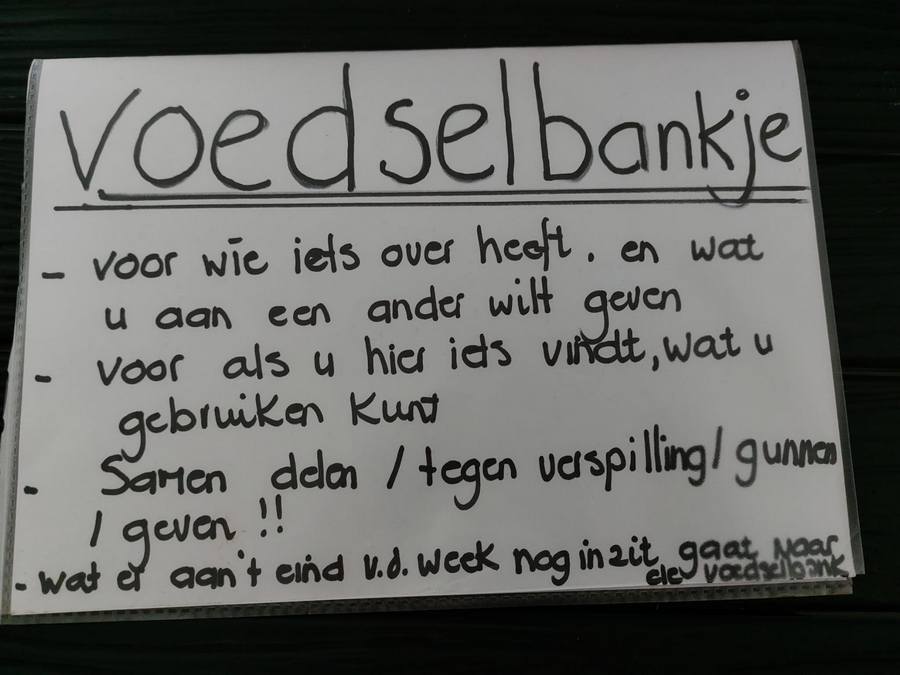 Voedselbankje
- voor wie iets over heeft. en wat
u aan een ander wilt geven
- voor als u hier iets vindt, wat u
gebruiken kunt
- Samen delen / tegen verspilling / gunnen
/ geven !!
- wat er aan't eind v.d. week nog in zit gaat naar
de voedselbank